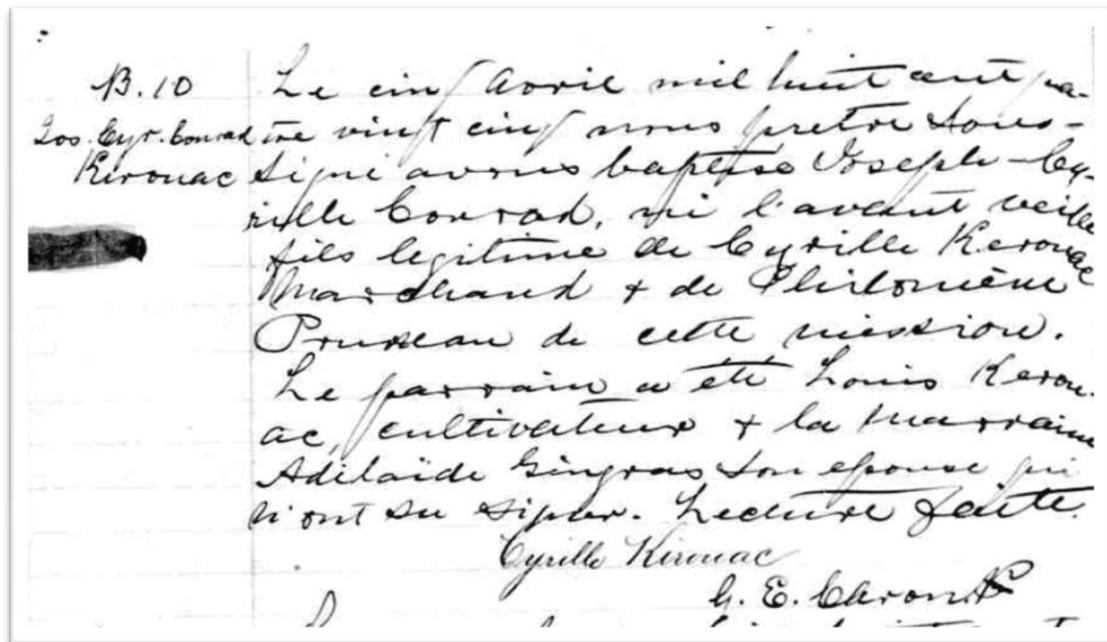 B. 10
Jos. Cyr. Conrad
Kirouac
Le cinq Avril mil huit cent qua-
tre vingt cinq nous pretre sous-
signé avons baptise Joseph-Cy-
rille Conrad, né l'avant veille
fils legitime de Cyrille Kerouac
Marchand + de Philomène
Pruneau de cette mission.
Le parrain a été Louis Kerou-
ac, cultivateur + la marraine
Adelaïde Gingras son epouse qui
n'ont su signer. Lecture faite.
Cyrille Kirouac
G. E. Caron